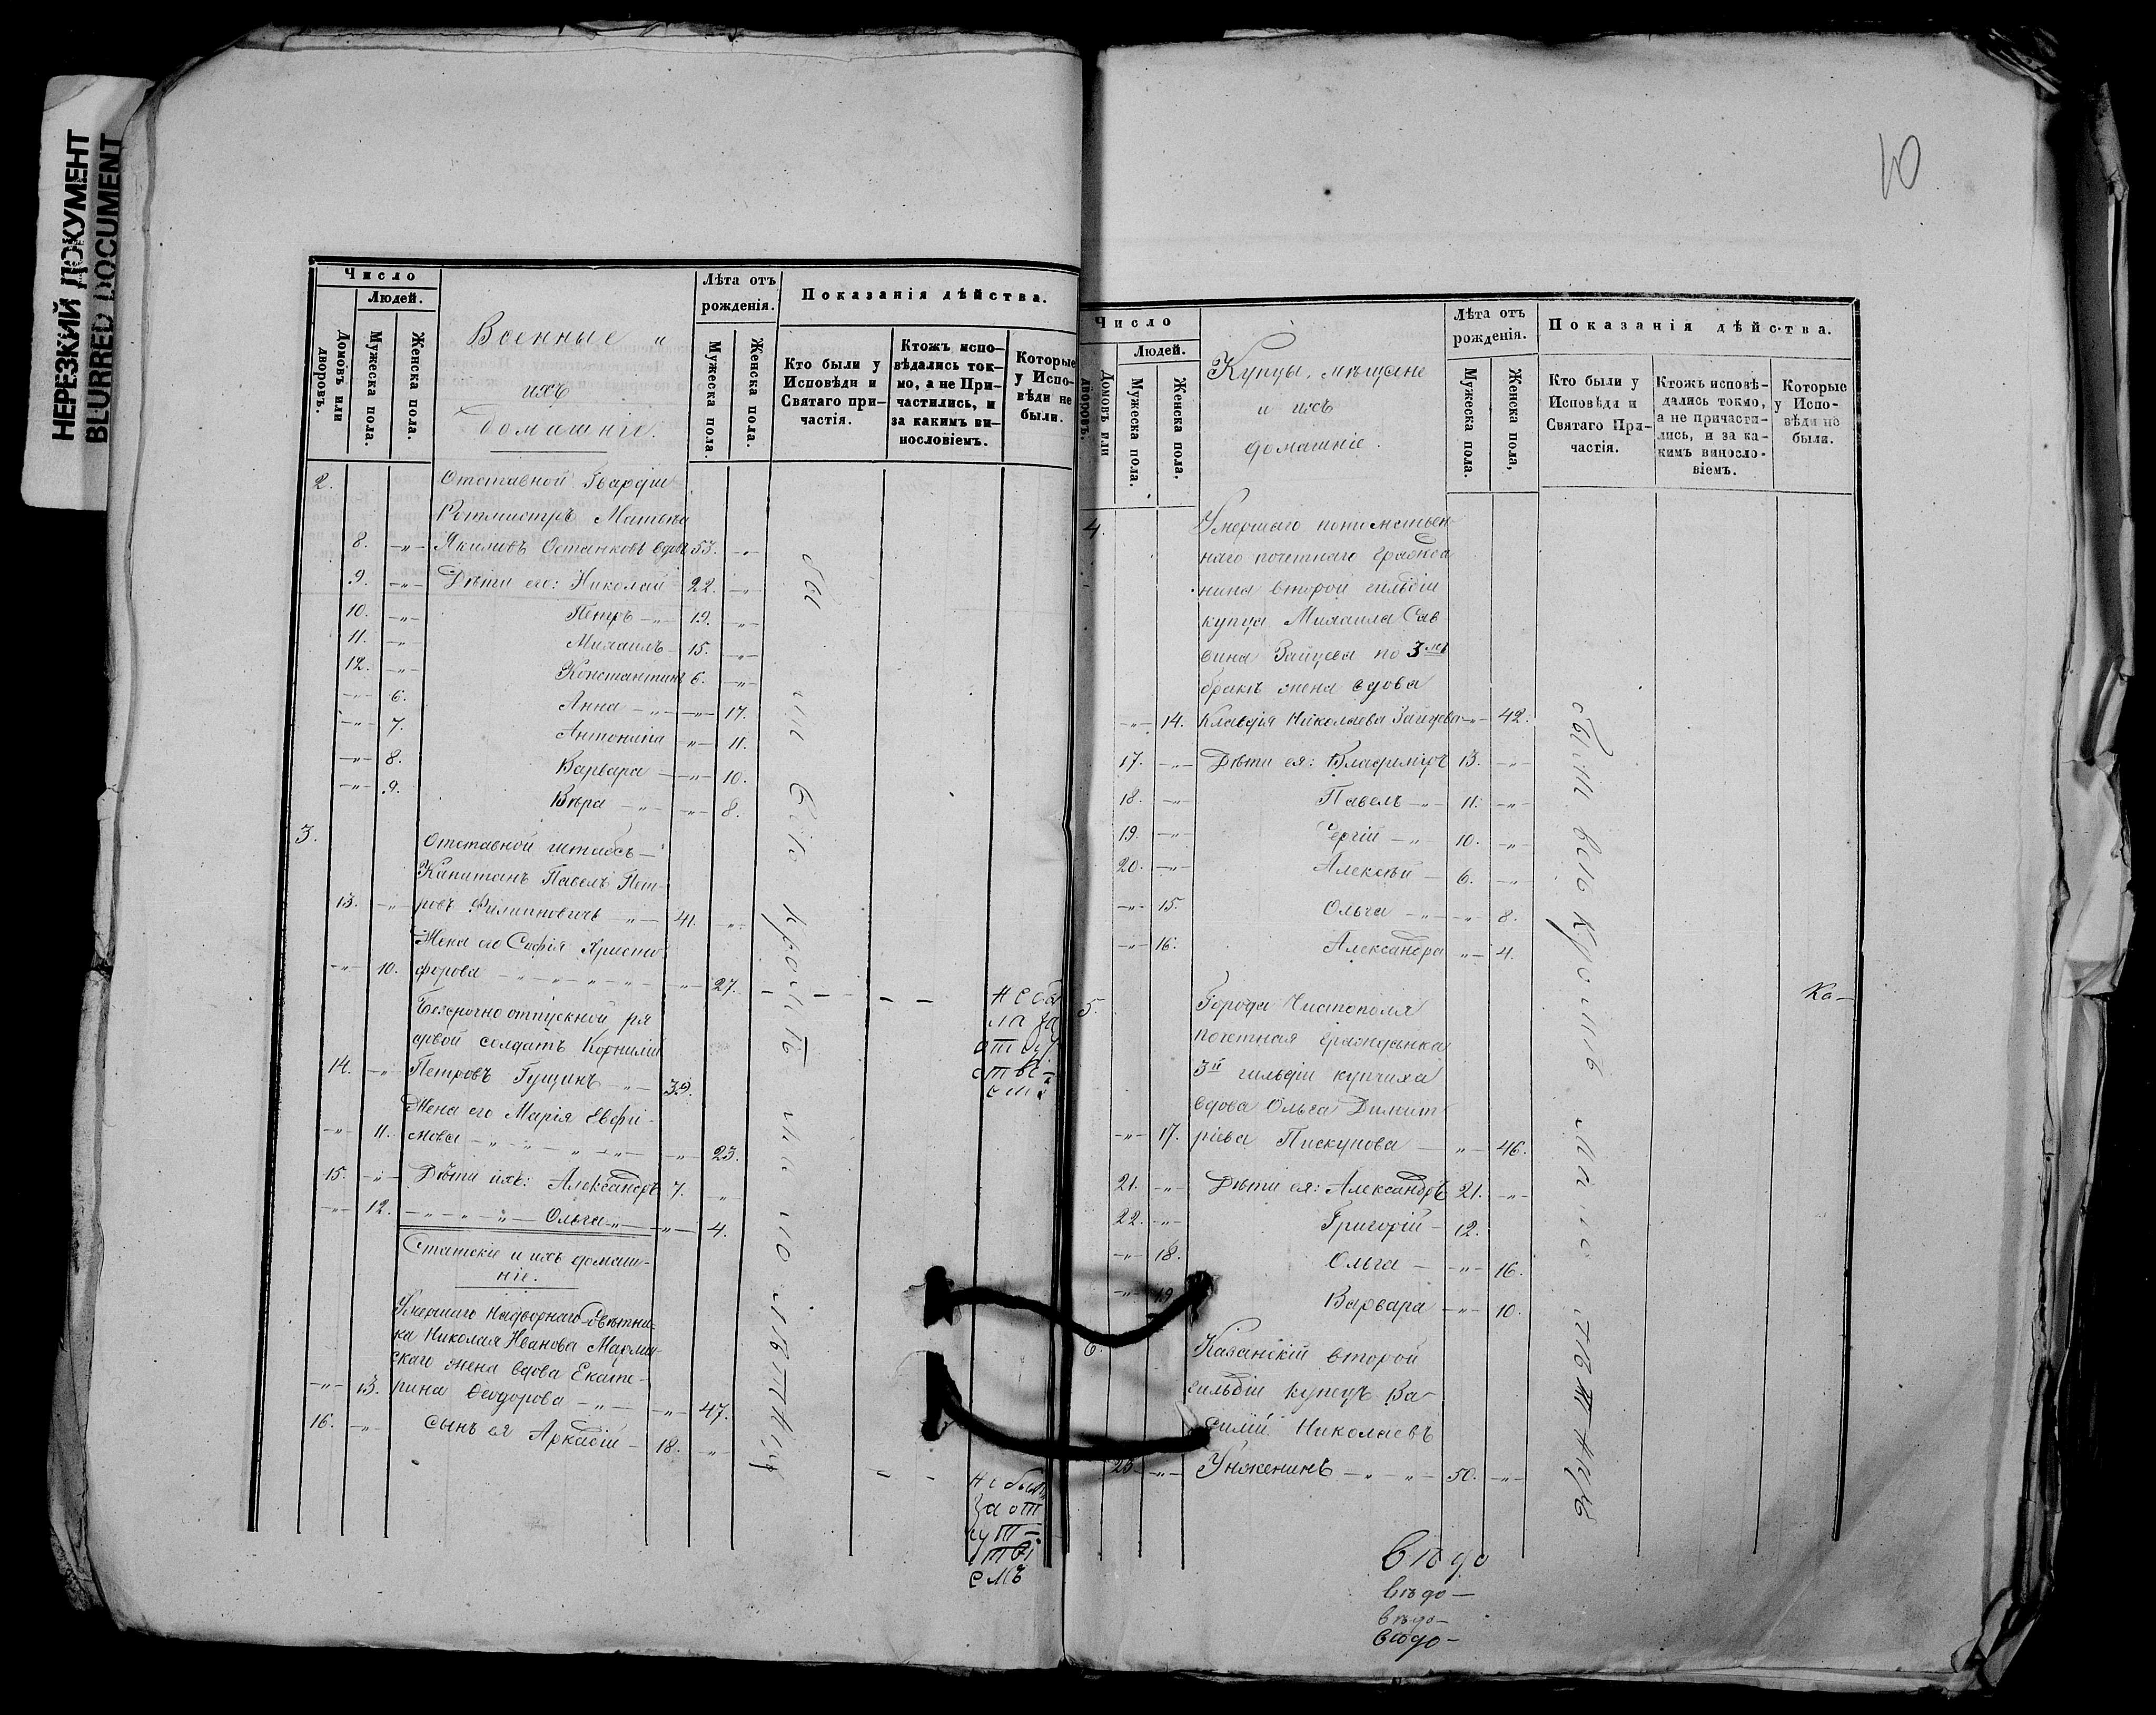 НЕРЕЗКИЙ ДОКУМЕНТ
BLURRED DOCUMENT
Число
Людей.
Домовъ или дворовъ.
Мужеска пола.
Женска пола.
Военные и
ихъ
домашніе.
Лѣта отъ рожденія.
Мужеска пола.
Женска пола.
Показанія дѣйства.
Кто были у Исповѣди и Святаго причастія.
Ктожъ исповѣдались токмо, а не Причастились, и за какимъ винословіемъ.
Которые у Исповѣди не были.
2.
Отставной Гвардіи
Ротмистръ Матвѣй
8. -"- Якимовъ Останковъ вдовъ 53. -"-
9. -"- Дѣти его: Николай 22. -"-
10. -"- Петръ -"- 19. -"-
11. -"- Михаилъ - 15. -"-
12. -"- Константинъ 6. -"-
-"- 6. Анна -"- -"- 17.
-"- 7. Антонина -"- 11.
-"- 8. Варвара -"- 10.
-"- 9. Вѣра -"- -"- 8.
3.
Отставной штабсъ-
Капитанъ Павелъ Пет-
13. -"- ровъ Филипповичъ -"- 41. -"-
Жена его Софія Христо
-"- 10. форова -"- -"- 27.
не бы
ла за
отсут
ствіе
Безсрочно отпускной ря
довой солдатъ Корнилій
14. -"- Петровъ Гущинъ -"- 39.
Жена его Марія Евфи-
-"- 11. мова -"- -"- 23.
15. -"- Дѣти ихъ: Александръ 7. -"-
-"- 12. -"- Ольга -"- -"- 4.
Статскіе и ихъ домаш-
ніе.
Умершаго Надворнаго Совѣтни-
ка Николая Иванова
скаго жена вдова Екате-
-"- 13. рина Ѳеодорова -"- -"- 47.
16. -"- Сынъ ея Аркадій - 18. -"-
не былъ
за от
сут-
ствi
емъ
бы ли всѣ кромѣ
10
Число
Людей.
Домовъ или дворовъ.
Мужеска пола.
Женска пола,
Купцы, мѣщане
и ихъ
домашніе.
Лѣта отъ рожденія.
Мужеска пола.
Женска пола,
Показанія дѣйства.
Кто были у Исповѣди и Святаго Причастія.
Ктожъ исповѣдались токмо, а не причастились, и за какимъ винословіемъ.
Которые у Исповѣди не были.
4.
Умершаго потомствен-
наго почетнаго гражда
нина второй гильдіи
купца Михаила Сав-
вина Зайцева по 3мъ
бракѣ жена вдова
-"- 14. Клавдія Николаева Зайцева -"- 42.
17. -"- Дѣти ея: Владиміръ 13. -"-
18. -"- Павелъ -"- 11. -"-
19. -"- Сергій -"- 10. -"-
20. -"- Алексѣй - 6. -"-
-"- 15. Ольга -"- -"- 8.
-"- 16. Александра -"- 4.
5.
Города Чистополя
почетная гражданка
3й гильдіи купчиха
вдова Ольга Димит
-"- 17. ріева Пискунова - -"- 46.
21. -"- Дѣти ея: Александръ 21. -"-
22. -"- Григорій - 12.
-"- 18. Ольга - -"- 16.
-"- 19. Варвара -"- 10.
6.
Казанскій второй
гильдіи купецъ Ва-
силій Николаевъ
23. -"- Унженинъ -"- -"- 50. -"-
Ка-
были всѣ кромѣ
вѣдо
вѣдо-
вѣдо-
вѣдо-